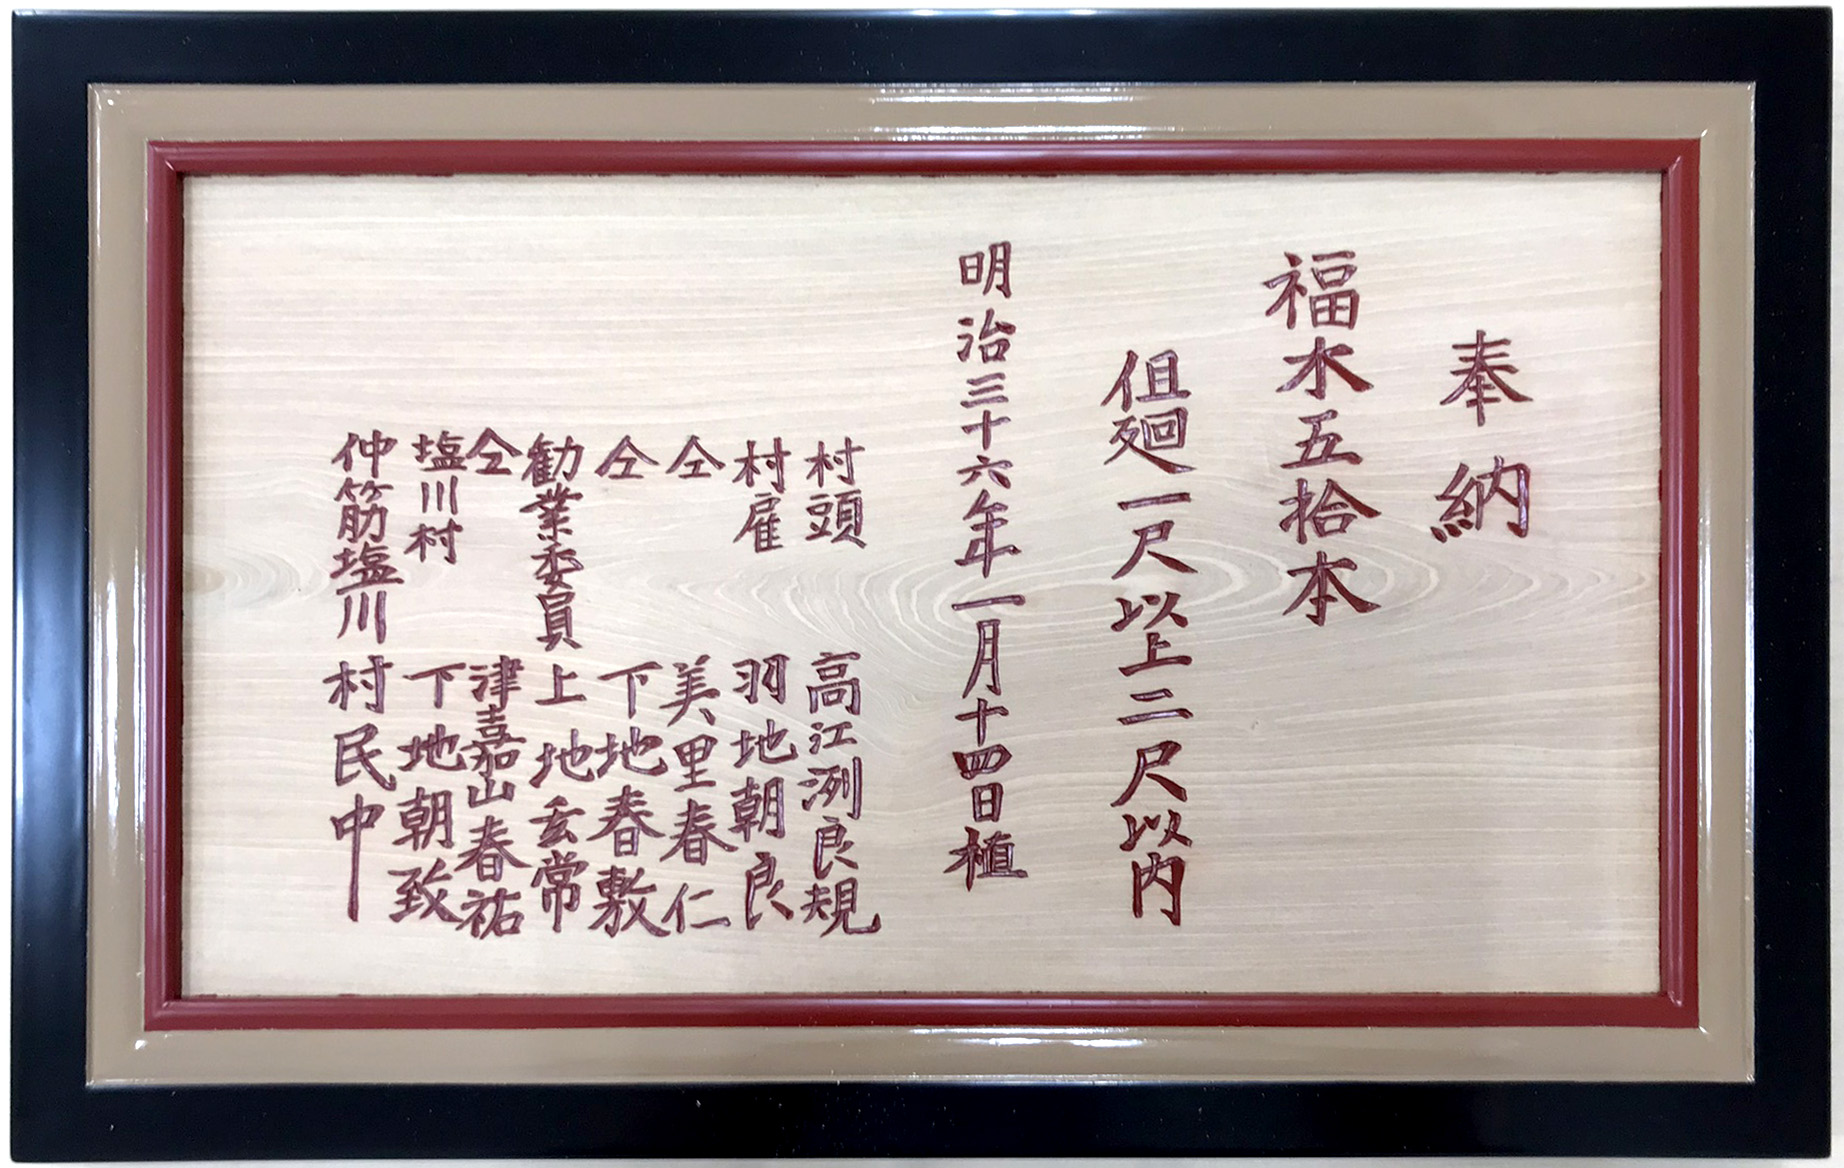 奉納
福木五拾本
但廻一尺以上二尺以内
明治三十六年一月十四日植
村頭 高江洌良規
村雇 羽地朝良
仝 美里春仁
仝 下地春敷
勧業委員 上地玄常
仝 津嘉山春祐
塩川村 下地朝致
仲筋塩川村民中